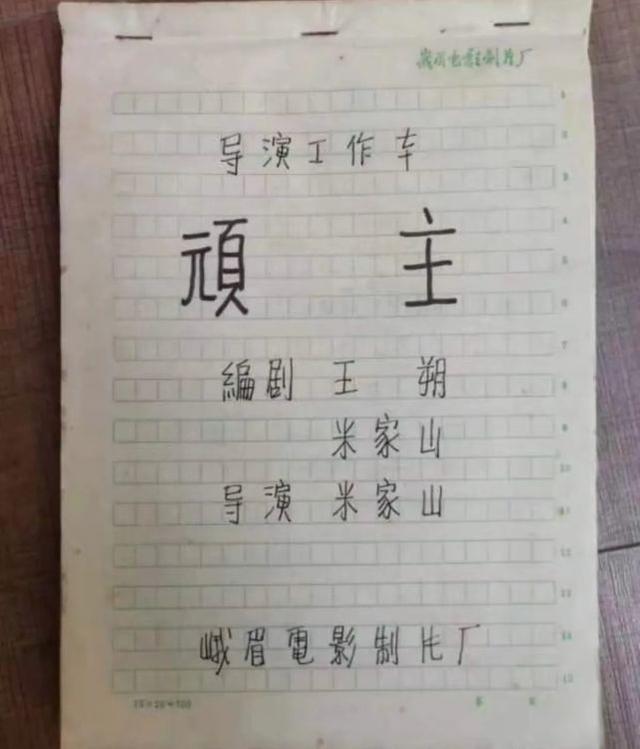 峨眉电影制片厂
导演工作车
頑 主
編剧 王 朔
米家山
导演 米家山
峨眉電影制片厂
15×20=300